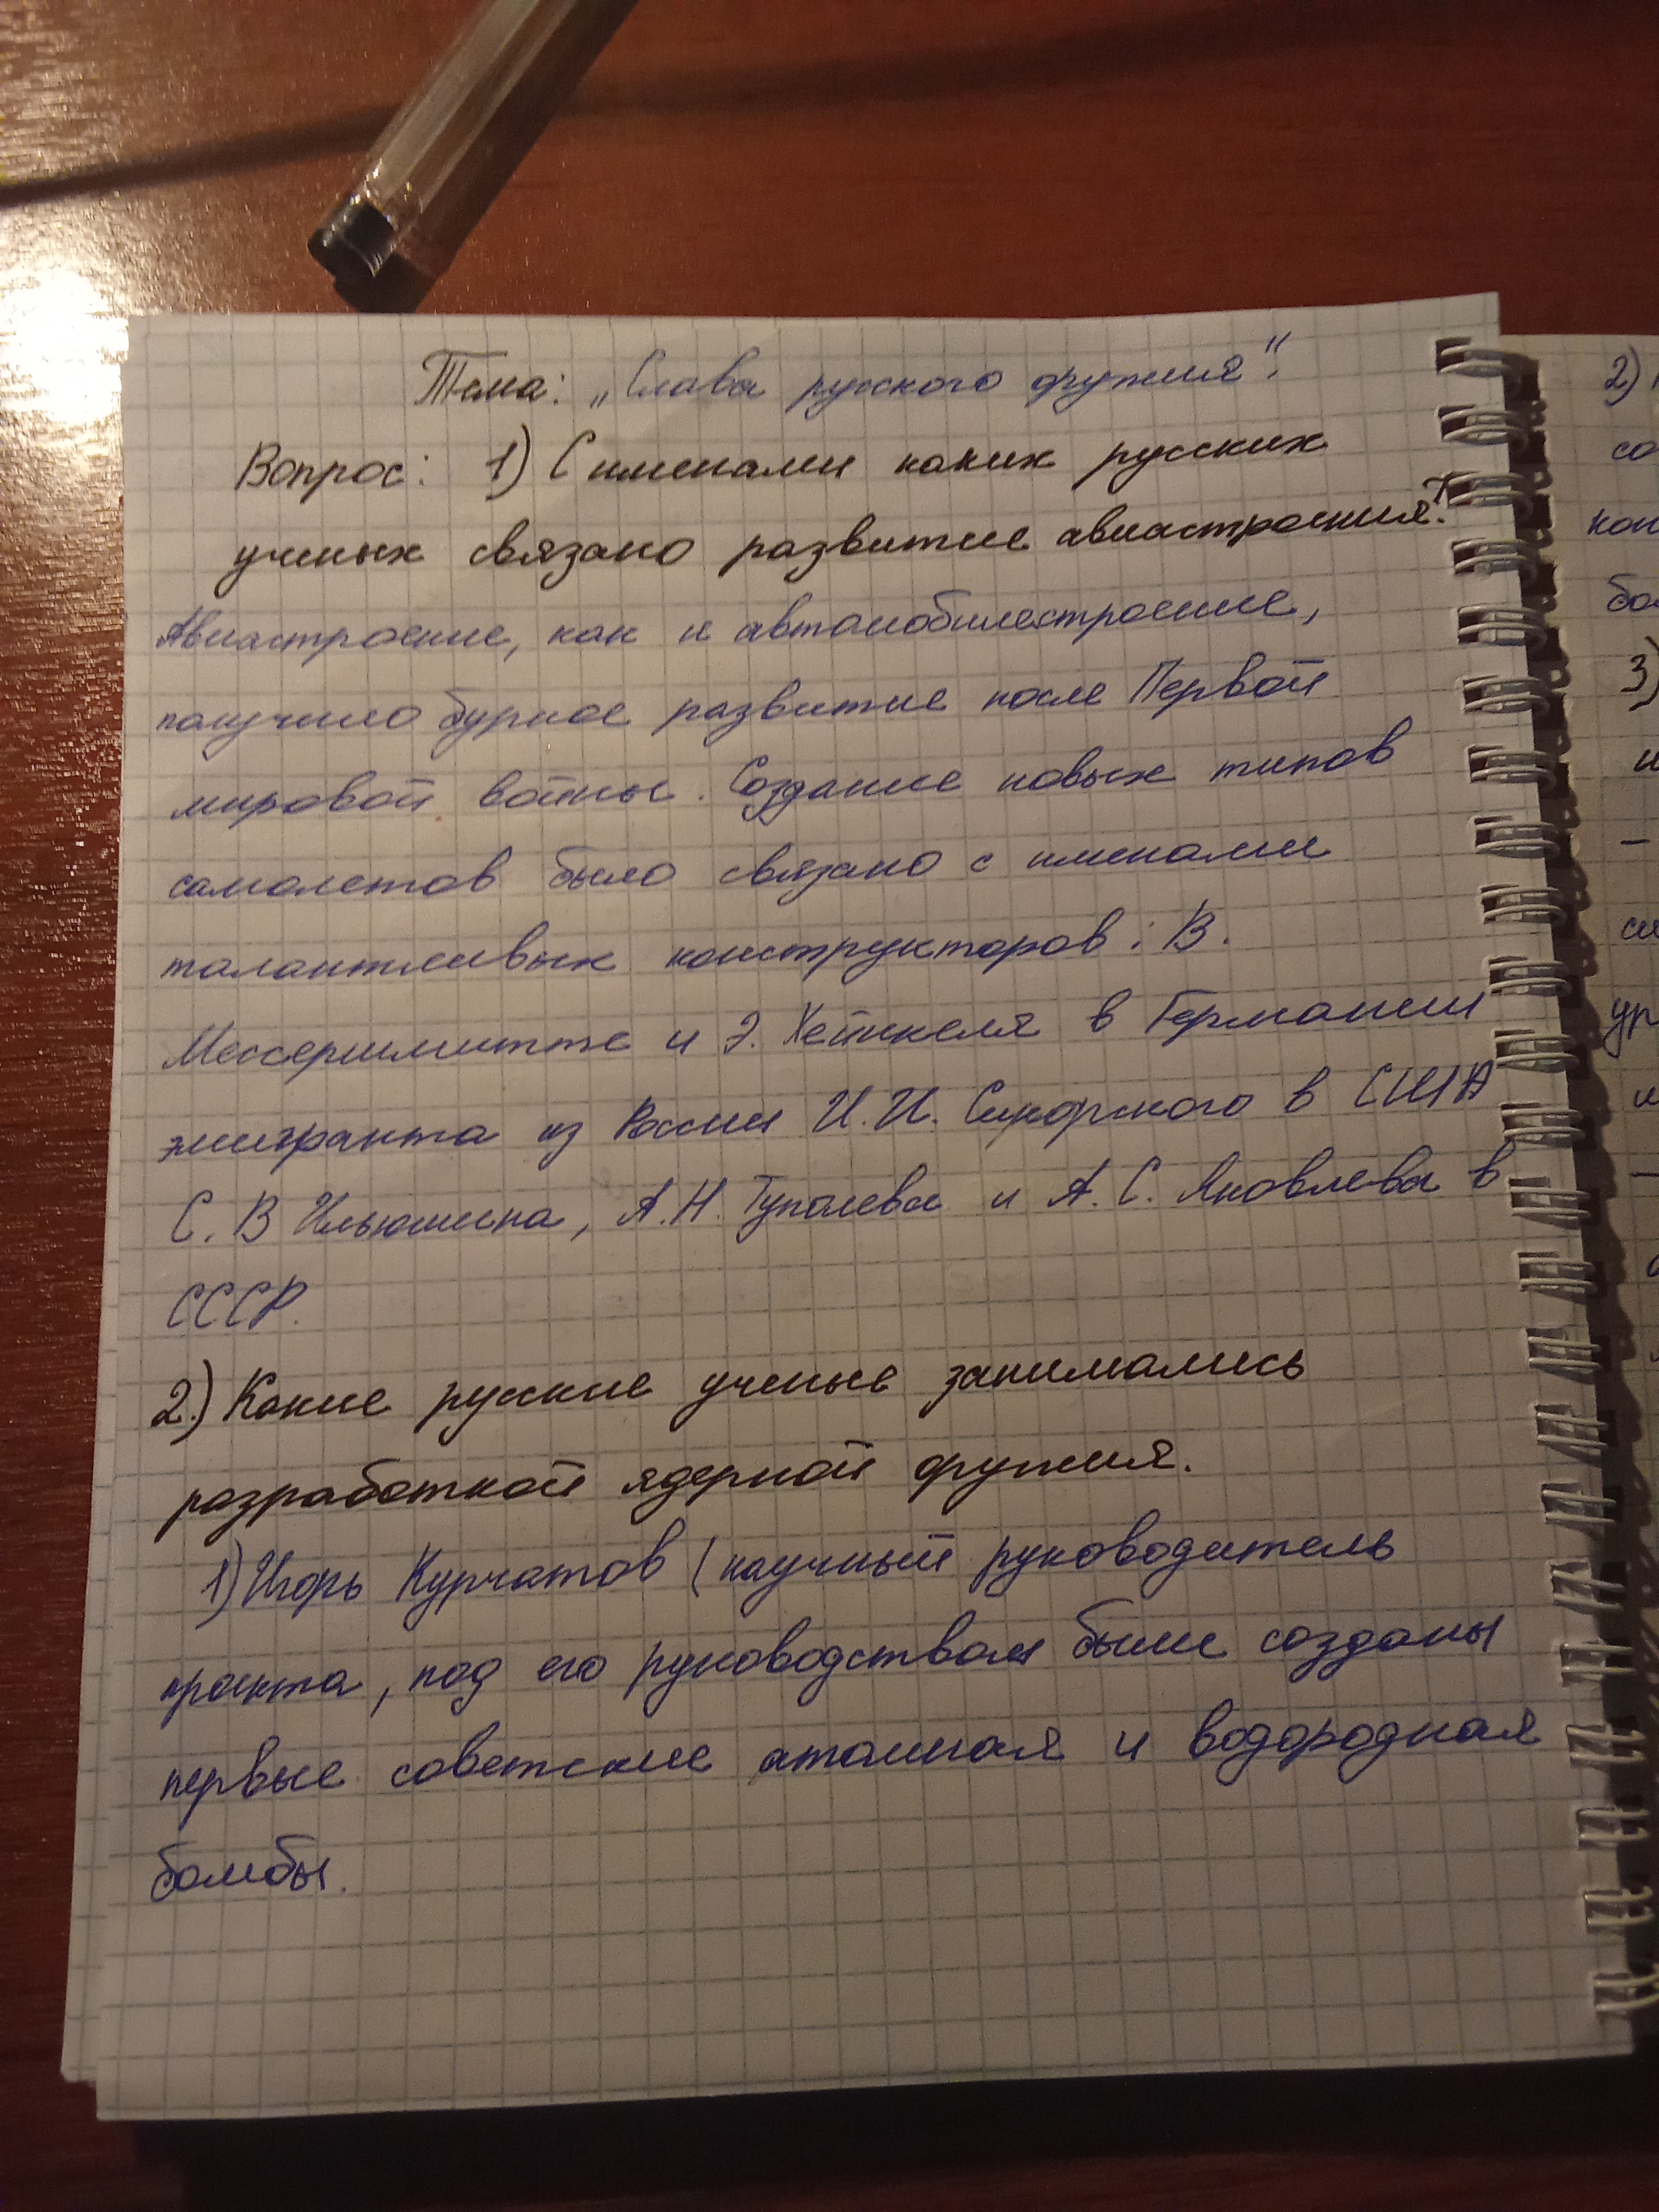 Тема: „Слава русского оружия".
Вопрос: 1) С именами каких русских
ученых связано развитие авиастроения?
Авиастроение, как и автомобилестроение,
получило бурное развитие после Первой
мировой войны. Создание новых типов
самолетов было связано с именами
талантливых конструкторов: В.
Мессершмитте и Э. Хейнкеля в Германии
эмигранта из России И.И. Сикорского в США
С. В Ильюшина, А.Н. Туполева и А.С. Яковлева в
СССР.
2.) Какие русские ученые занимались
разработкой ядерной оружия.
1) Игорь Курчатов (научный руководитель
проекта, под его руководством были созданы
первые советские атомная и водородная
бомбы.
2)
со
3)